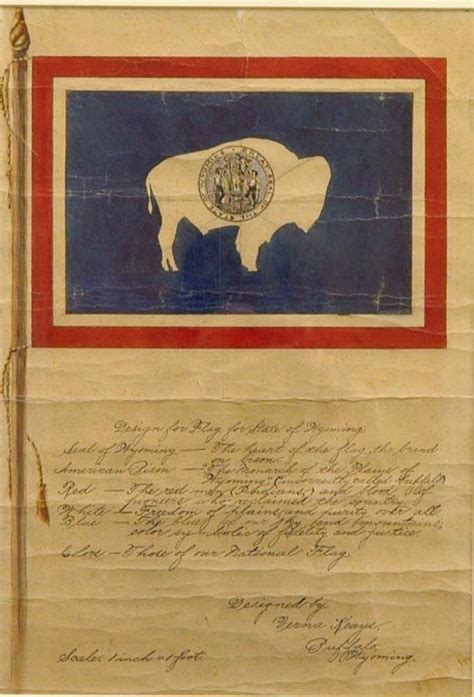 GREAT SEAL OF THE STATE OF WYOMING
Design for Flag for State of Wyoming
Seal of Wyoming — The heart of the flag, the brand
on bison.
American Bison — "The monarch of the Plains of
Wyoming" (incorrectly called Buffalo)
Red — The red men (Indians) and blood of
pioneers who reclaimed the country.
White — Freedom of plains and purity over all
Blue — The blue of our sky and mountains,
color symbolic of fidelity and justice.
Colors — Those of our National Flag.
Designed by
Verna Keays,
Buffalo,
Wyoming.
Scale: 1 inch as foot.